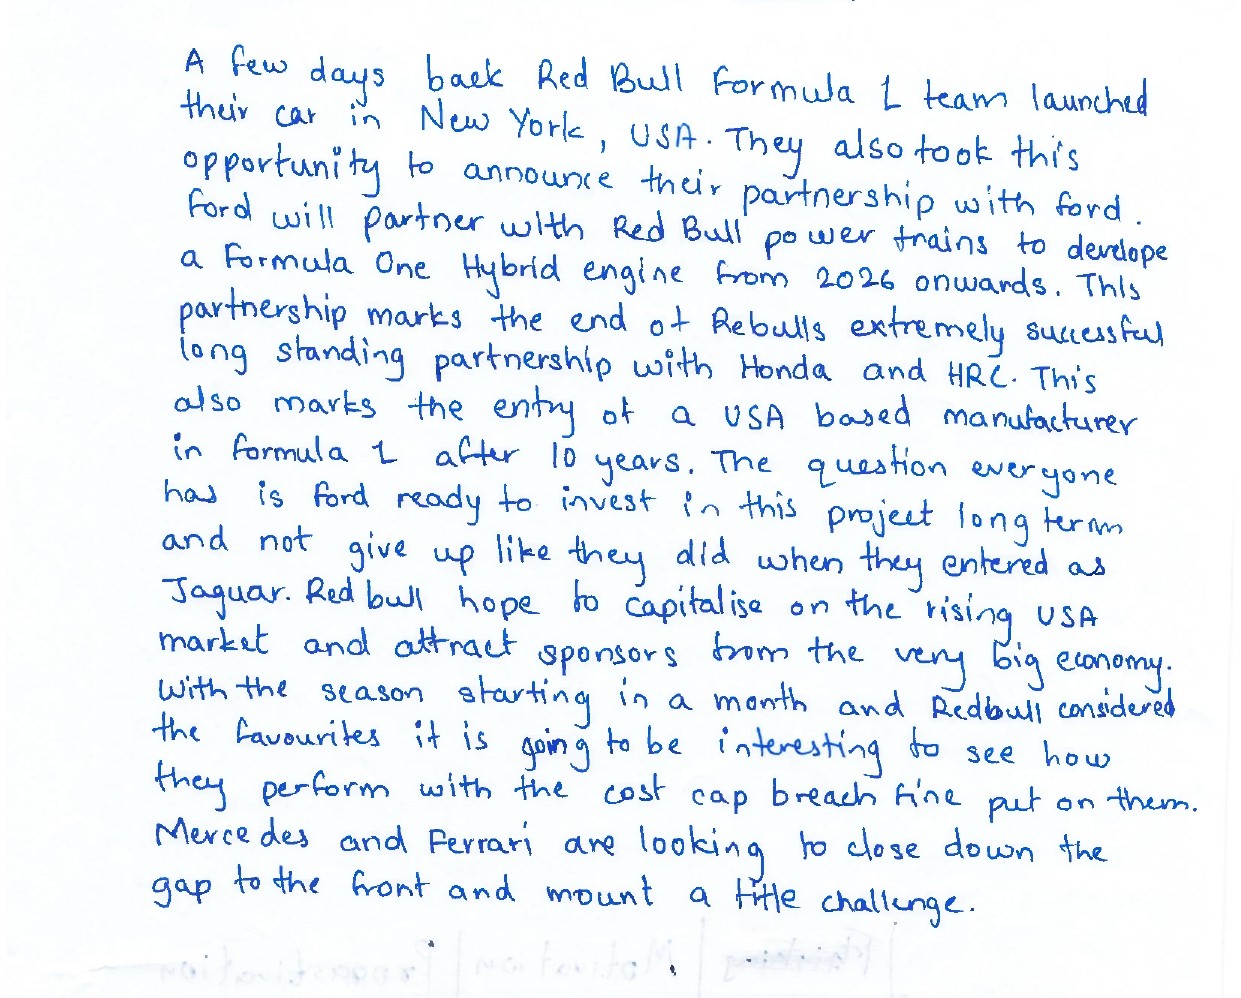 A few days back Red Bull Formula 1 team launched
their car in New York, USA. They also took this
opportunity to announce their partnership with ford.
Ford will partner with Red Bull power trains to develope
a Formula One Hybrid engine from 2026 onwards. This
partnership marks the end of Rebulls extremely successful
long standing partnership with Honda and HRC. This
also marks the entry of a USA based manufacturer
in formula 1 after 10 years. The question everyone
has is ford ready to invest in this project long term
and not give up like they did when they entered as
Jaguar. Red bull hope to capitalise on the rising USA
market and attract sponsors from the very big economy.
With the season starting in a month and Redbull considered
the favourites it is going to be interesting to see how
they perform with the cost cap breach fine put on them.
Mercedes and Ferrari are looking to close down the
gap to the front and mount a title challenge.